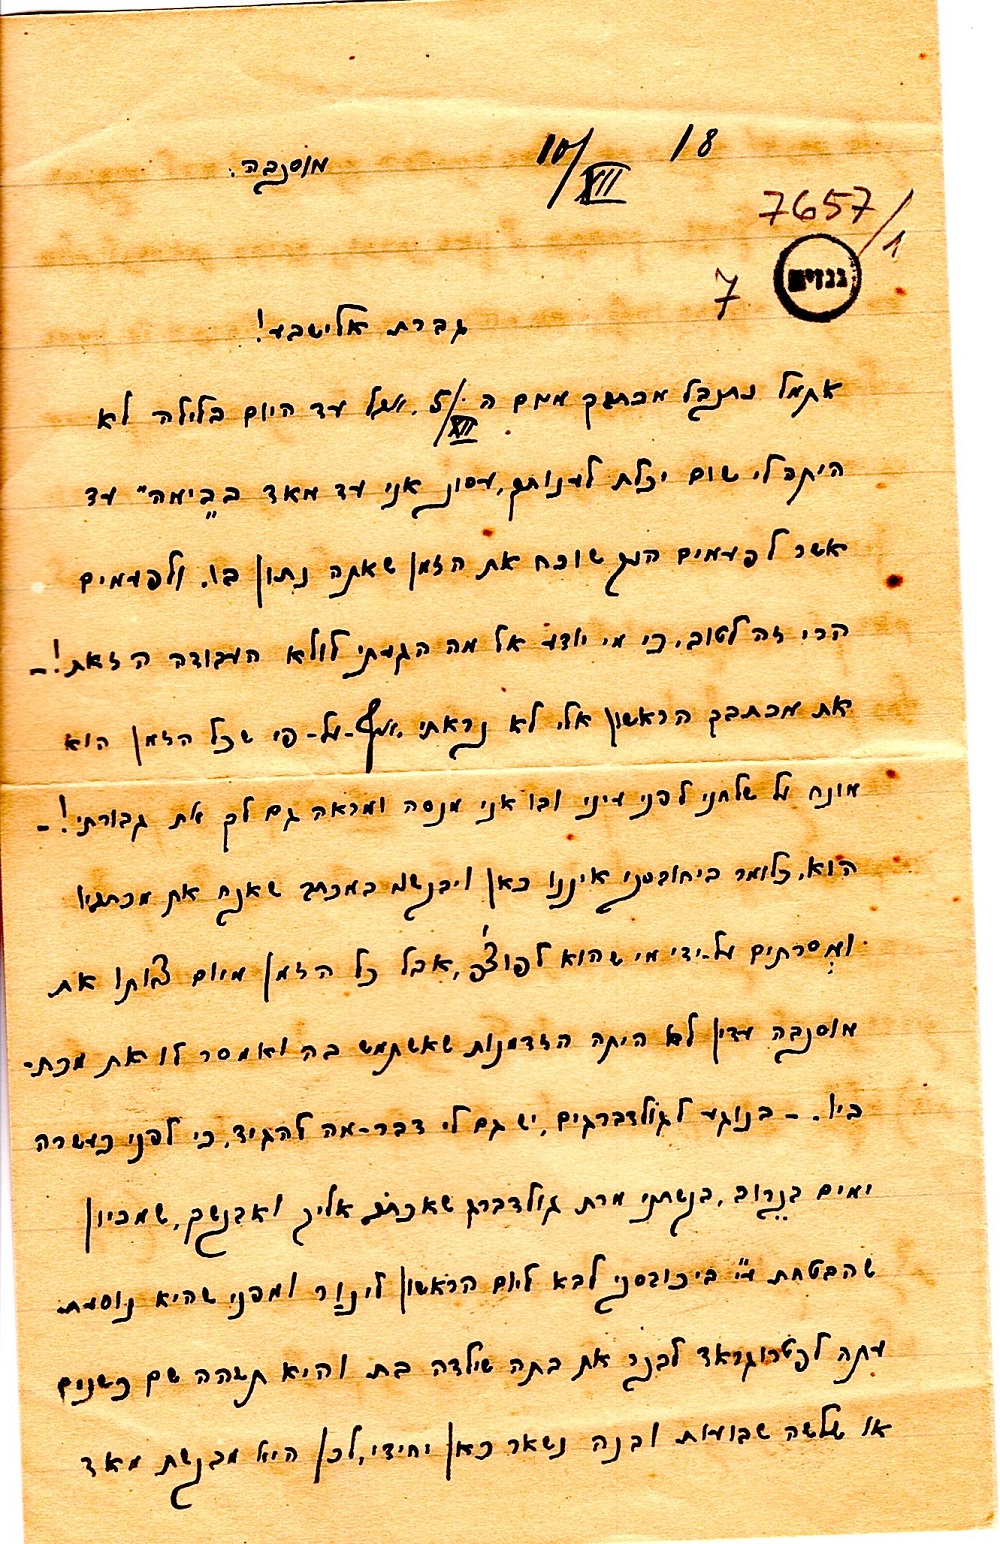 18 10/XII מוסקבה.
7657/1
גנזים
7
גברת אלישבע!
אתמול נתקבל מכתבך מיום ה 5/XII. אבל עד היום בלילה לא
היתה לי שום יכלת לענותך, עסוק אני עד מאד ב„בימה" עד
אשר לפעמים הנני שוכח את הזמן שאתה נתון בו. ולפעמים
הרי זה לטוב, כי מי יודע אל מה הגעתי לולא העבודה הזאת! –
את מכתבך הראשון אלי לא קראתי, אף-על-פי שכל הזמן הוא
מונח על שלחני לפני עיני ובו אני מנסה ומראה גם לך את גבורתי! –
הוא, כלומר ביחובסקי איננו כאן ויבקש במכתב שאקח את מכתביו
ומסרתים על-ידי מי שהוא לפוצ'פ, אבל כל הזמן מיום צותו את
מוסקבה עדין לא היתה הזדמנות שאשתמש בה ואמסר לו את מכת-
ביו. – בנוגע לגולדברגים, יש גם לי דבר-מה להגיד, כי לפני כעשרה
ימים בקרוב, בקשתני מרת גולדברג שאכתב אליך ואבקשך, שמכיון
שהבטחת ע"י ביכובסקי לבא ליום הראשון לינור ומפני שהיא נוסעת
עתה לפטרוגראד לבקר את בתה שילדה בת והיא תשהה שם כשנים
או שלשה שבועות ובנה נשאר כאן יחידי, לכן היא מבקשת מאד